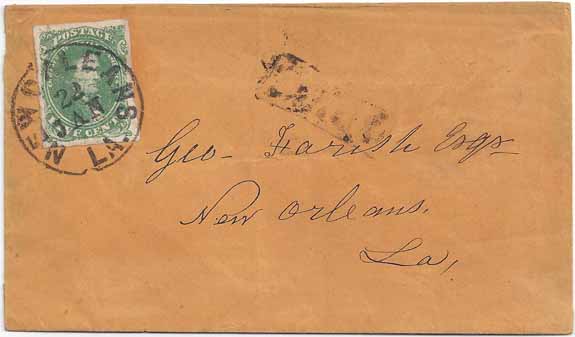 POSTAGE
FIVE CENTS
NEW ORLEANS LA
22
JAN
Geo. Farish Esqr
New Orleans.
La,